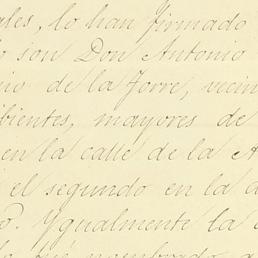 ales, lo han firmado
lo son Don Antonio
nio de la Torre, vecin
bientes, mayores de
en la calle de la A
el segundo en la d
o. Ygualmente la
nombrado